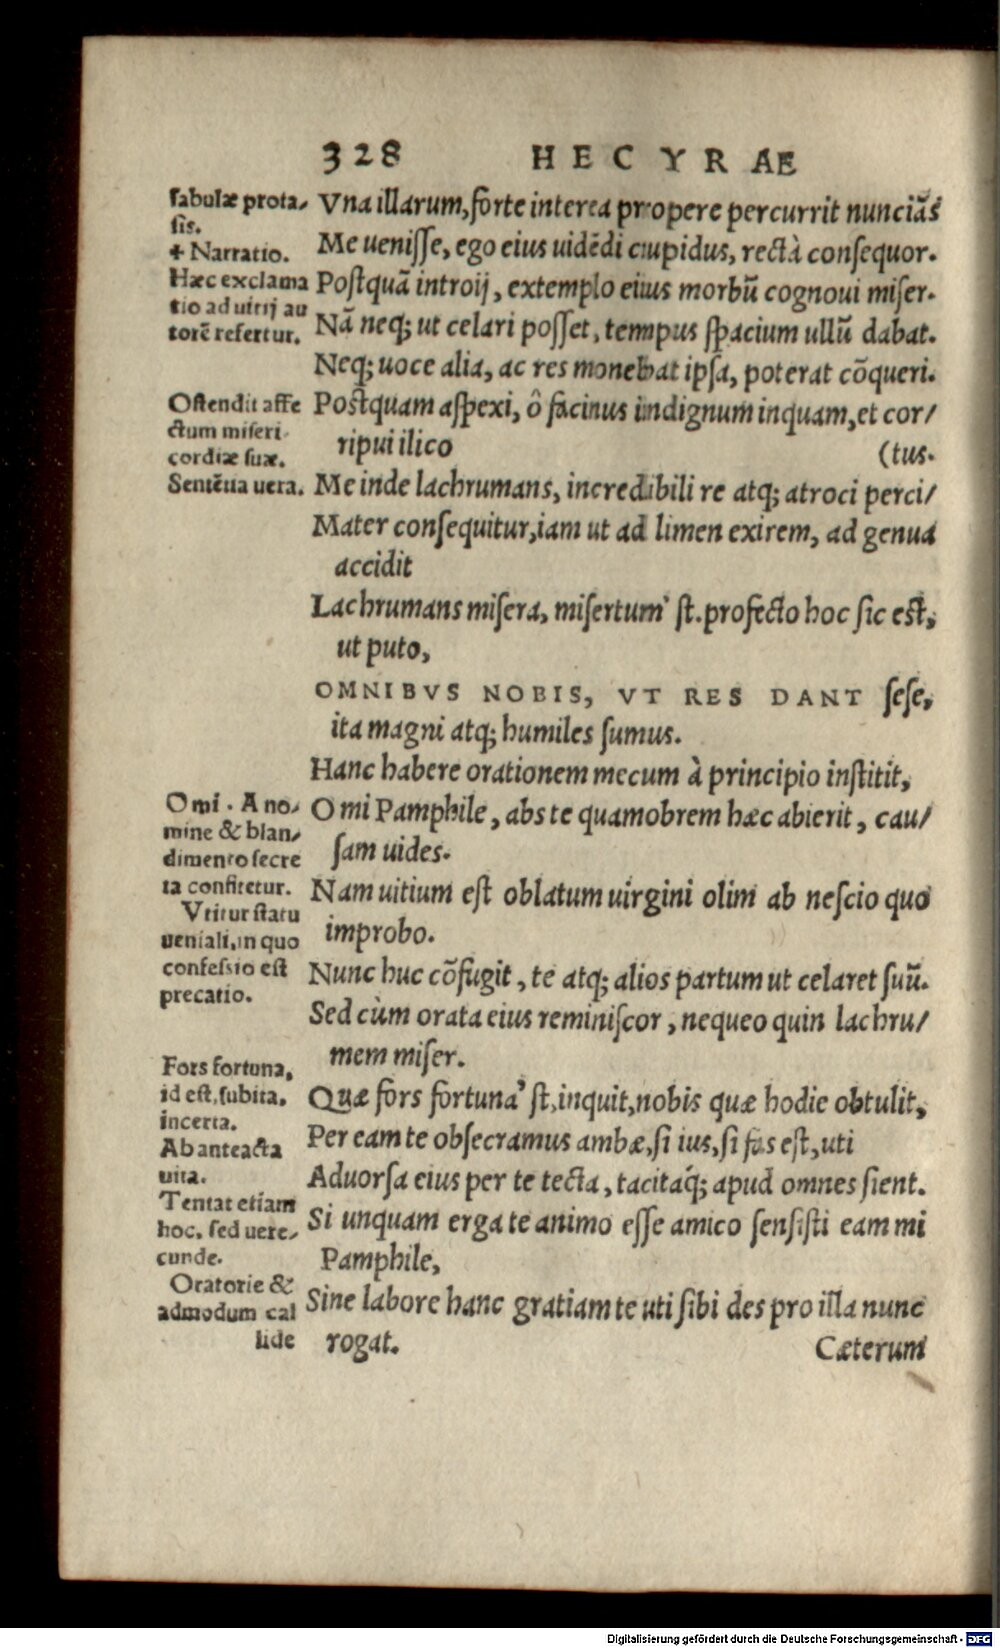 328 HECYRAE
fabulæ prota/
sis.
+ Narratio.
Hæc exclama
tio ad uitij au
torẽ refertur.
Ostendit affe
ctum miseri
cordiæ suæ.
Sentẽtia uera.
Vna illarum, forte interea propere percurrit nunciãs
Me uenisse, ego eius uidẽdi cupidus, rectà consequor.
Postquã introij, extemplo eius morbũ cognoui miser.
Nã neq; ut celari posset, tempus spacium ullũ dabat.
Neq; uoce alia, ac res monebat ipsa, poterat cõqueri.
Postquam aspexi, ô facinus indignum inquam, et cor/
ripui ilico (tus.
Me inde lachrumans, incredibili re atq; atroci perci/
Mater consequitur, iam ut ad limen exirem, ad genua
accidit
Lachrumans misera, misertum' st. profecto hoc sic est,
ut puto,
OMNIBVS NOBIS, VT RES DANT sese,
ita magni atq; humiles sumus.
Hanc habere orationem mecum à principio institit,
O mi . A no/
mine & blan/
dimento secre
ta confitetur.
Vtitur statu
ueniali, in quo
confessio est
precatio.
O mi Pamphile, abs te quamobrem hæc abierit, cau/
sam uides.
Nam uitium est oblatum uirgini olim ab nescio quo
improbo.
Nunc huc cõfugit, te atq; alios partum ut celaret suũ.
Sed cùm orata eius reminiscor, nequeo quin lachru/
mem miser.
Fors fortuna,
id est, subita,
incerta.
Ab anteacta
uita.
Tentat etiam
hoc, sed uere/
cunde.
Oratorie &
admodum cal
lide
Quæ fors fortuna' st, inquit, nobis quæ hodie obtulit,
Per eam te obsecramus ambæ, si ius, si fas est, uti
Aduorsa eius per te tecta, tacitaq́; apud omnes sient.
Si unquam erga te animo esse amico sensisti eam mi
Pamphile,
Sine labore hanc gratiam te uti sibi des pro illa nunc
rogat. Cæterum
Digitalisierung gefördert durch die Deutsche Forschungsgemeinschaft - DFG